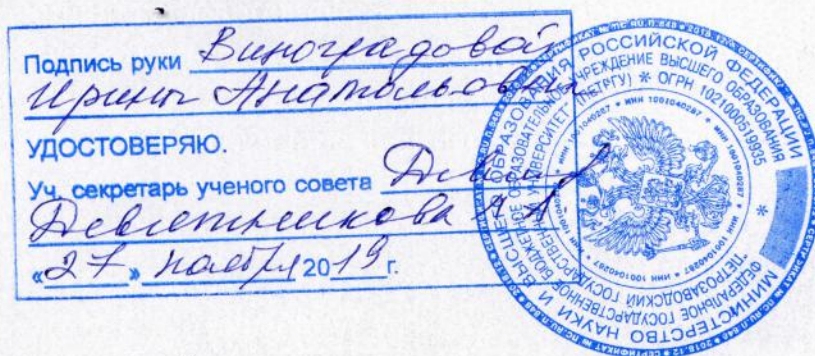 Подпись руки Виноградовой
Ирины Анатольевны
УДОСТОВЕРЯЮ.
Уч. секретарь ученого совета
Девлетникова
«27» ноября 2019 г.
МИНИСТЕРСТВО НАУКИ И ВЫСШЕГО ОБРАЗОВАНИЯ РОССИЙСКОЙ ФЕДЕРАЦИИ
ФЕДЕРАЛЬНОЕ ГОСУДАРСТВЕННОЕ БЮДЖЕТНОЕ ОБРАЗОВАТЕЛЬНОЕ УЧРЕЖДЕНИЕ ВЫСШЕГО ОБРАЗОВАНИЯ
"ПЕТРОЗАВОДСКИЙ ГОСУДАРСТВЕННЫЙ УНИВЕРСИТЕТ" (ПЕТРГУ) * ОГРН 1021000519935 *
* ИНН 1001040287 * ИНН 1001040287 * ИНН 1001040287